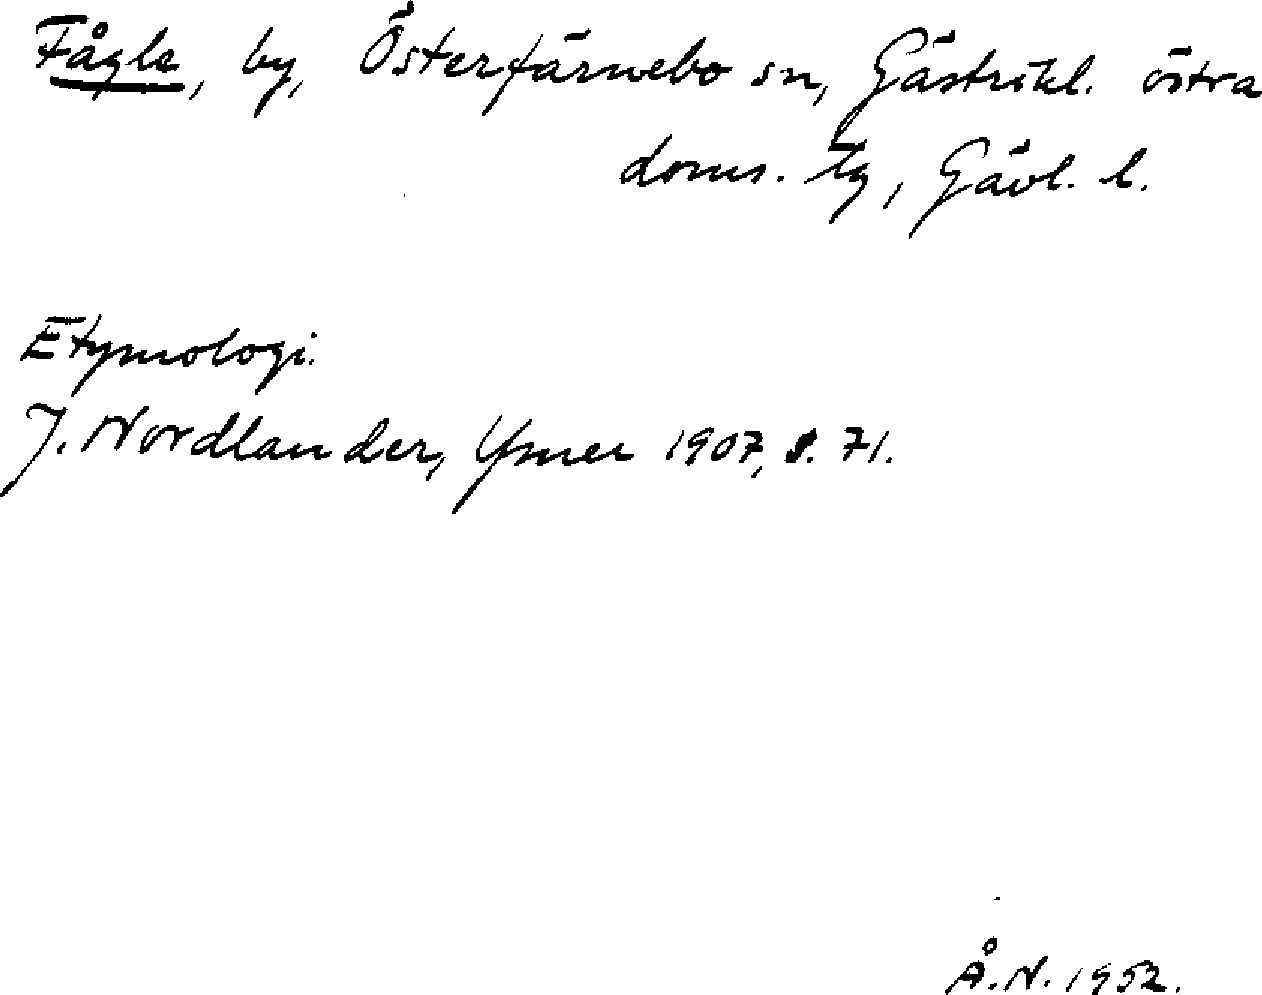 Fågle, by, Österfärnebo sn, Gästrikl. östra
doms. tg, Gävl. l.
Etymologi.
J. Nordlander, Ymer 1907, s. 71.
Å.N. 1952.